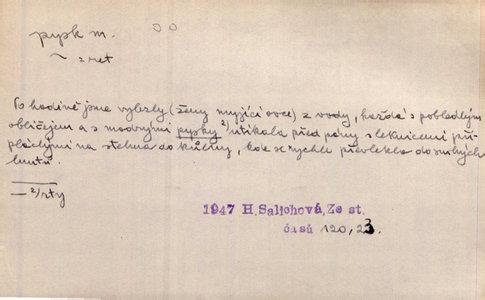 pysk m.
~ = ret
Po hodině jsme vylezly (ženy myjící ovce) z vody, každá s pobledlým
obličejem a s modrými pysky²⁾ utíkala před pány s leknicemi při-
pláclými na stehna do kůlny, kde se rychle převlekla do suchých
²⁾ rty
1947 H. Salichová, Ze st.
časů 120, 23.